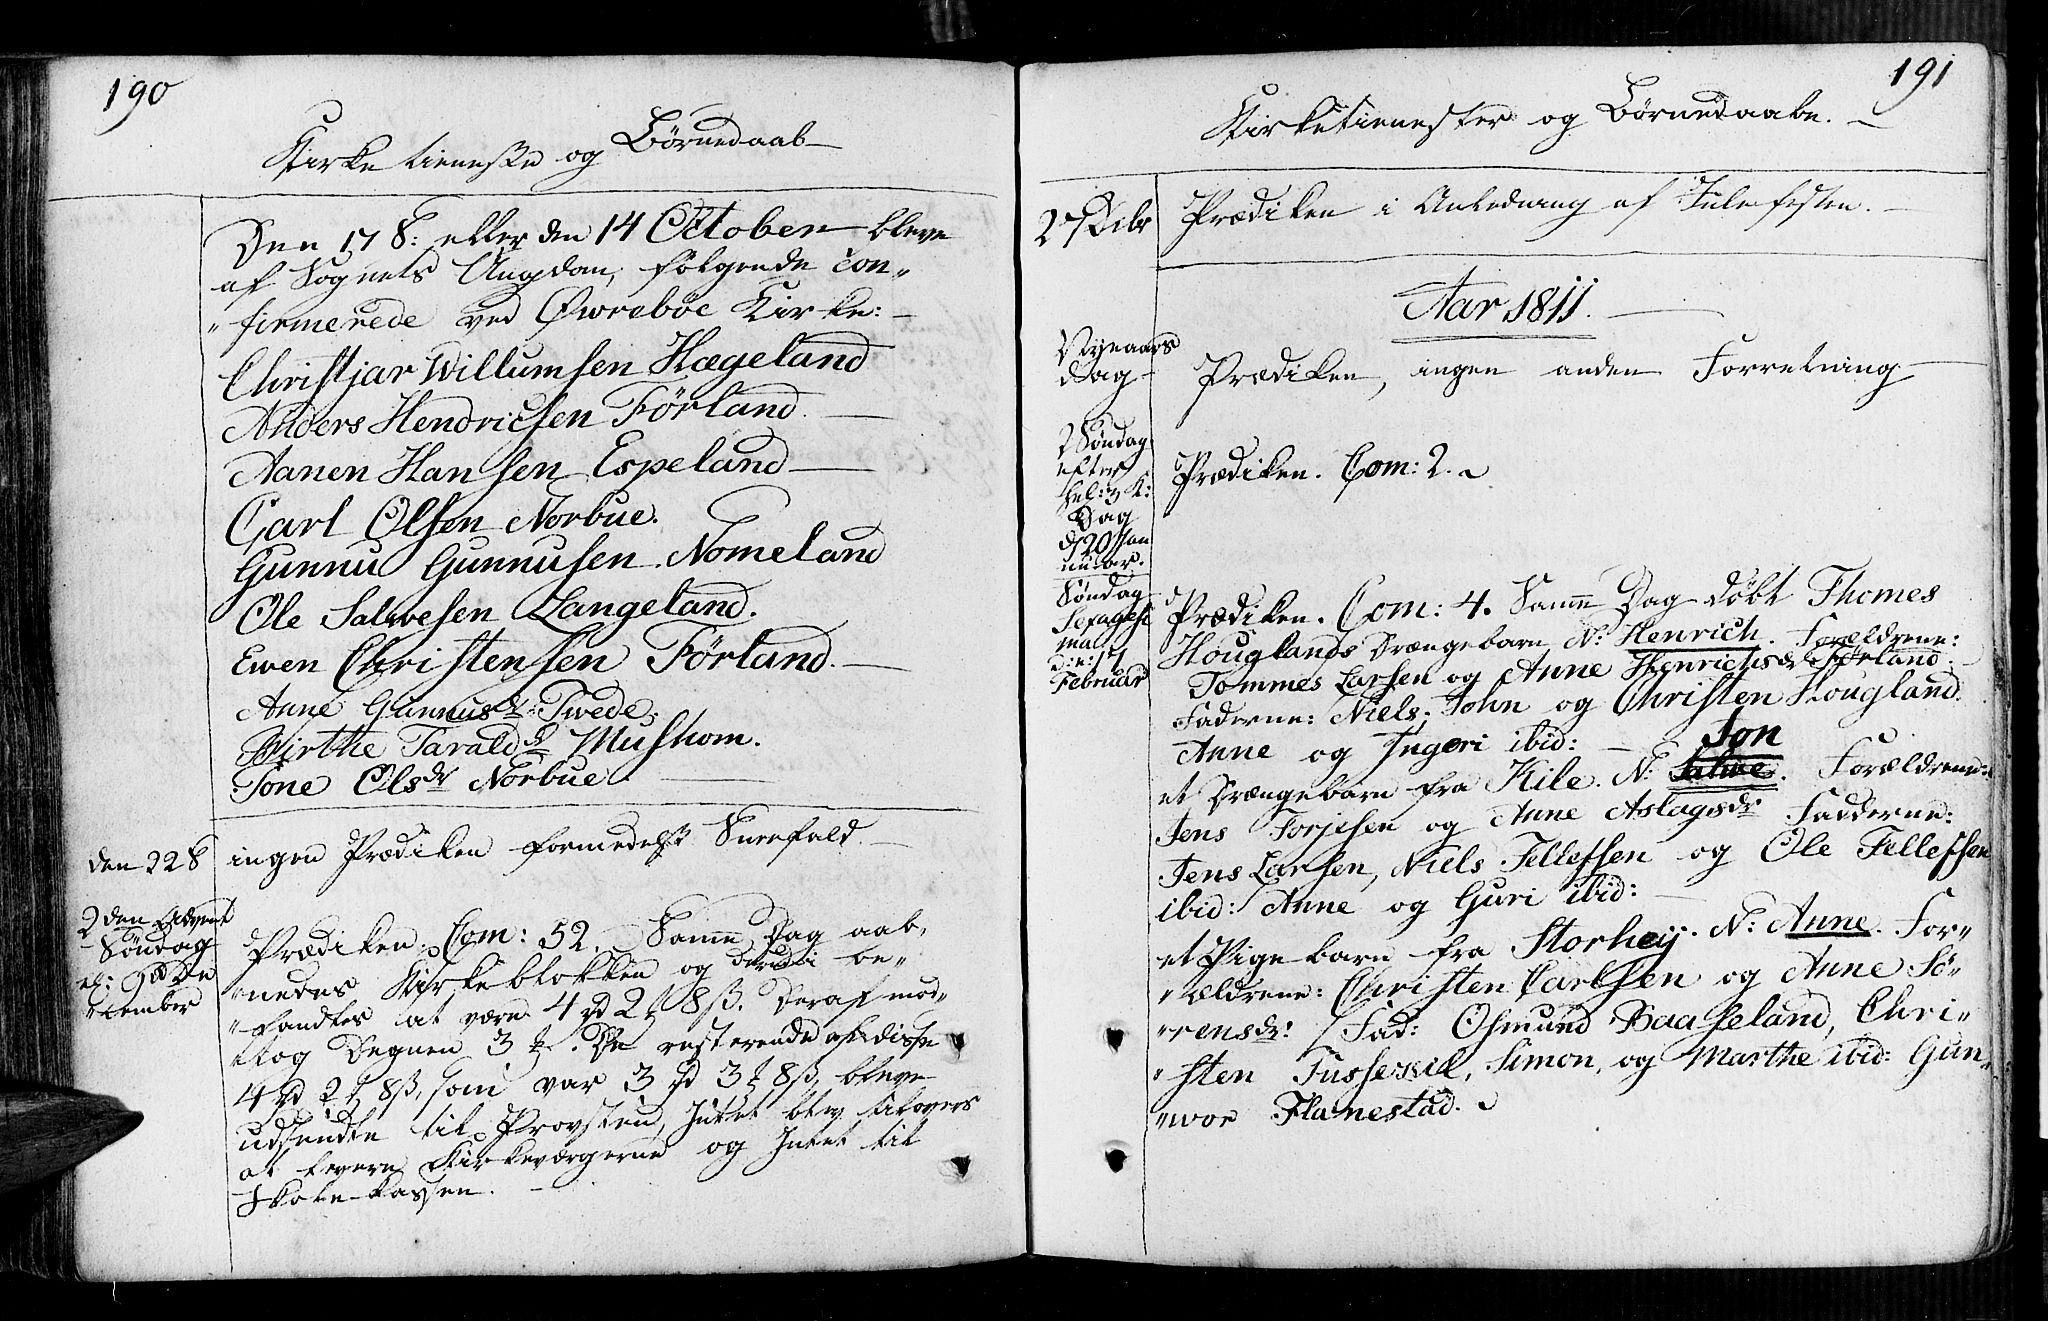 190
Kirketieneste og Børnedaab
Den 17 S: eller den 14 October bleve
af Sognets Ungdom, følgende Con„
„firmerede ved Øwrebøe Kirke:
Christjar Willumsen Hægeland
Anders Hendricsen Førland.
Aanen Hansen Espeland
Carl Olsen Norbue.
Gunnu Gunnusen Nomeland
Ole Salwesen Langeland.
Ewen Christensen Førland.
Anne Gunnusdr Twede.
Birthe Taraldd Mushom.
Tone Olsdr Norbue
den 22 S
ingen Prædiken formedelst Sneefald.
2den Advent
Søndag
el: 9de De
„cember
Prædiken. Com: 52. Samme Dag aab„
„nedes Kirkeblokken og derudi be„
„fandtes at være 4 rd 2 ʒ 8 ß. Deraf mod„
„tog Degnen 3 ʒ. De resterende af disse
4 rd 2 ʒ 8 ß, som var 3 rd 3 ʒ 8 ß, bleve
udsendte til Provsten, Intet blev tilovers
at levere Kirkeværgerne og Intet til
Skole-kassen.
191
Kirketienester og Børnedaabe.
27 Decbr
Prædiken i Anledning af Julefesten.
Aar 1811.
Nyeaars
dag
Prædiken, ingen anden Forretning
2 Søndag
efter
hel: 3 K:
Dag
d 20 Jan
nuar.
Prædiken. Com: 2.
Søndag
Sexagesi
ma
d: 17
Februar
Prædiken. Com: 4. Samme Dag døbt Thomes
Houglands Drængebarn N: Henrich. Forældrene:
Tommes Larsen og Anne Henrichsdr Førland.
Faderne: Niels, John og Christen Hougland.
Anne og Ingeri ibid:
Jon
et Drængebarn fra Kile. N: Salwe. Forældrene:
Jens Torjesen og Anne Aslagsdr Fadderne:
Jens Larsen, Niels Tellefsen og Ole Tellefsen
ibid: Anne og Guri ibid:
et Pigebarn fra Storheij. N: Anne. For„
„ældrene: Christen Carlsen og Anne Sø„
„rensdr: Fad: Osmund Baaseland, Chri„
„sten Tusservil, Simon, og Marthe ibid: Gun„
„wor Flanestad.